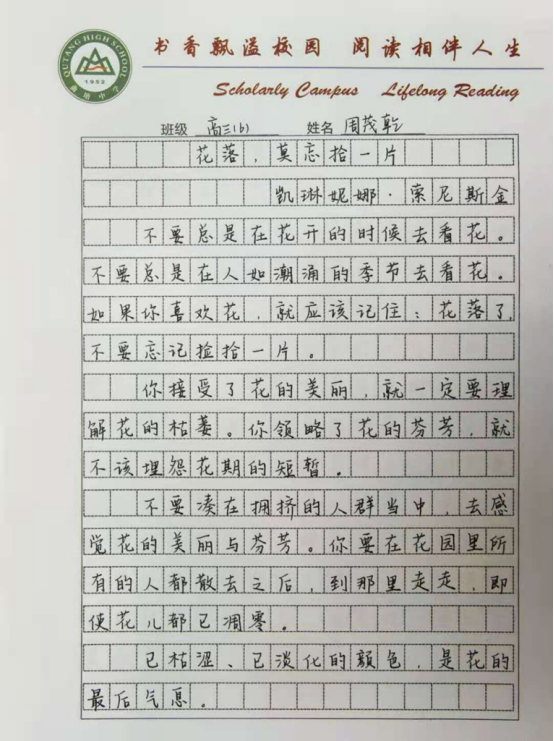 QUTANG HIGH SCHOOL
1952
曲塘中学
书香飘溢校园 阅读相伴人生
Scholarly Campus Lifelong Reading
班级 高三(6) 姓名 周茂乾
花落，莫忘拾一片
凯琳妮娜·索尼斯金
不要总是在花开的时候去看花。
不要总是在人如潮涌的季节去看花。
如果你喜欢花，就应该记住：花落了，
不要忘记捡拾一片。
你接受了花的美丽，就一定要理
解花的枯萎。你领略了花的芬芳，就
不该埋怨花期的短暂。
不要凑在拥挤的人群当中，去感
觉花的美丽与芬芳。你要在花园里所
有的人都散去之后，到那里走走，即
使花儿都已凋零。
已枯涩、已淡化的颜色，是花的
最后气息。